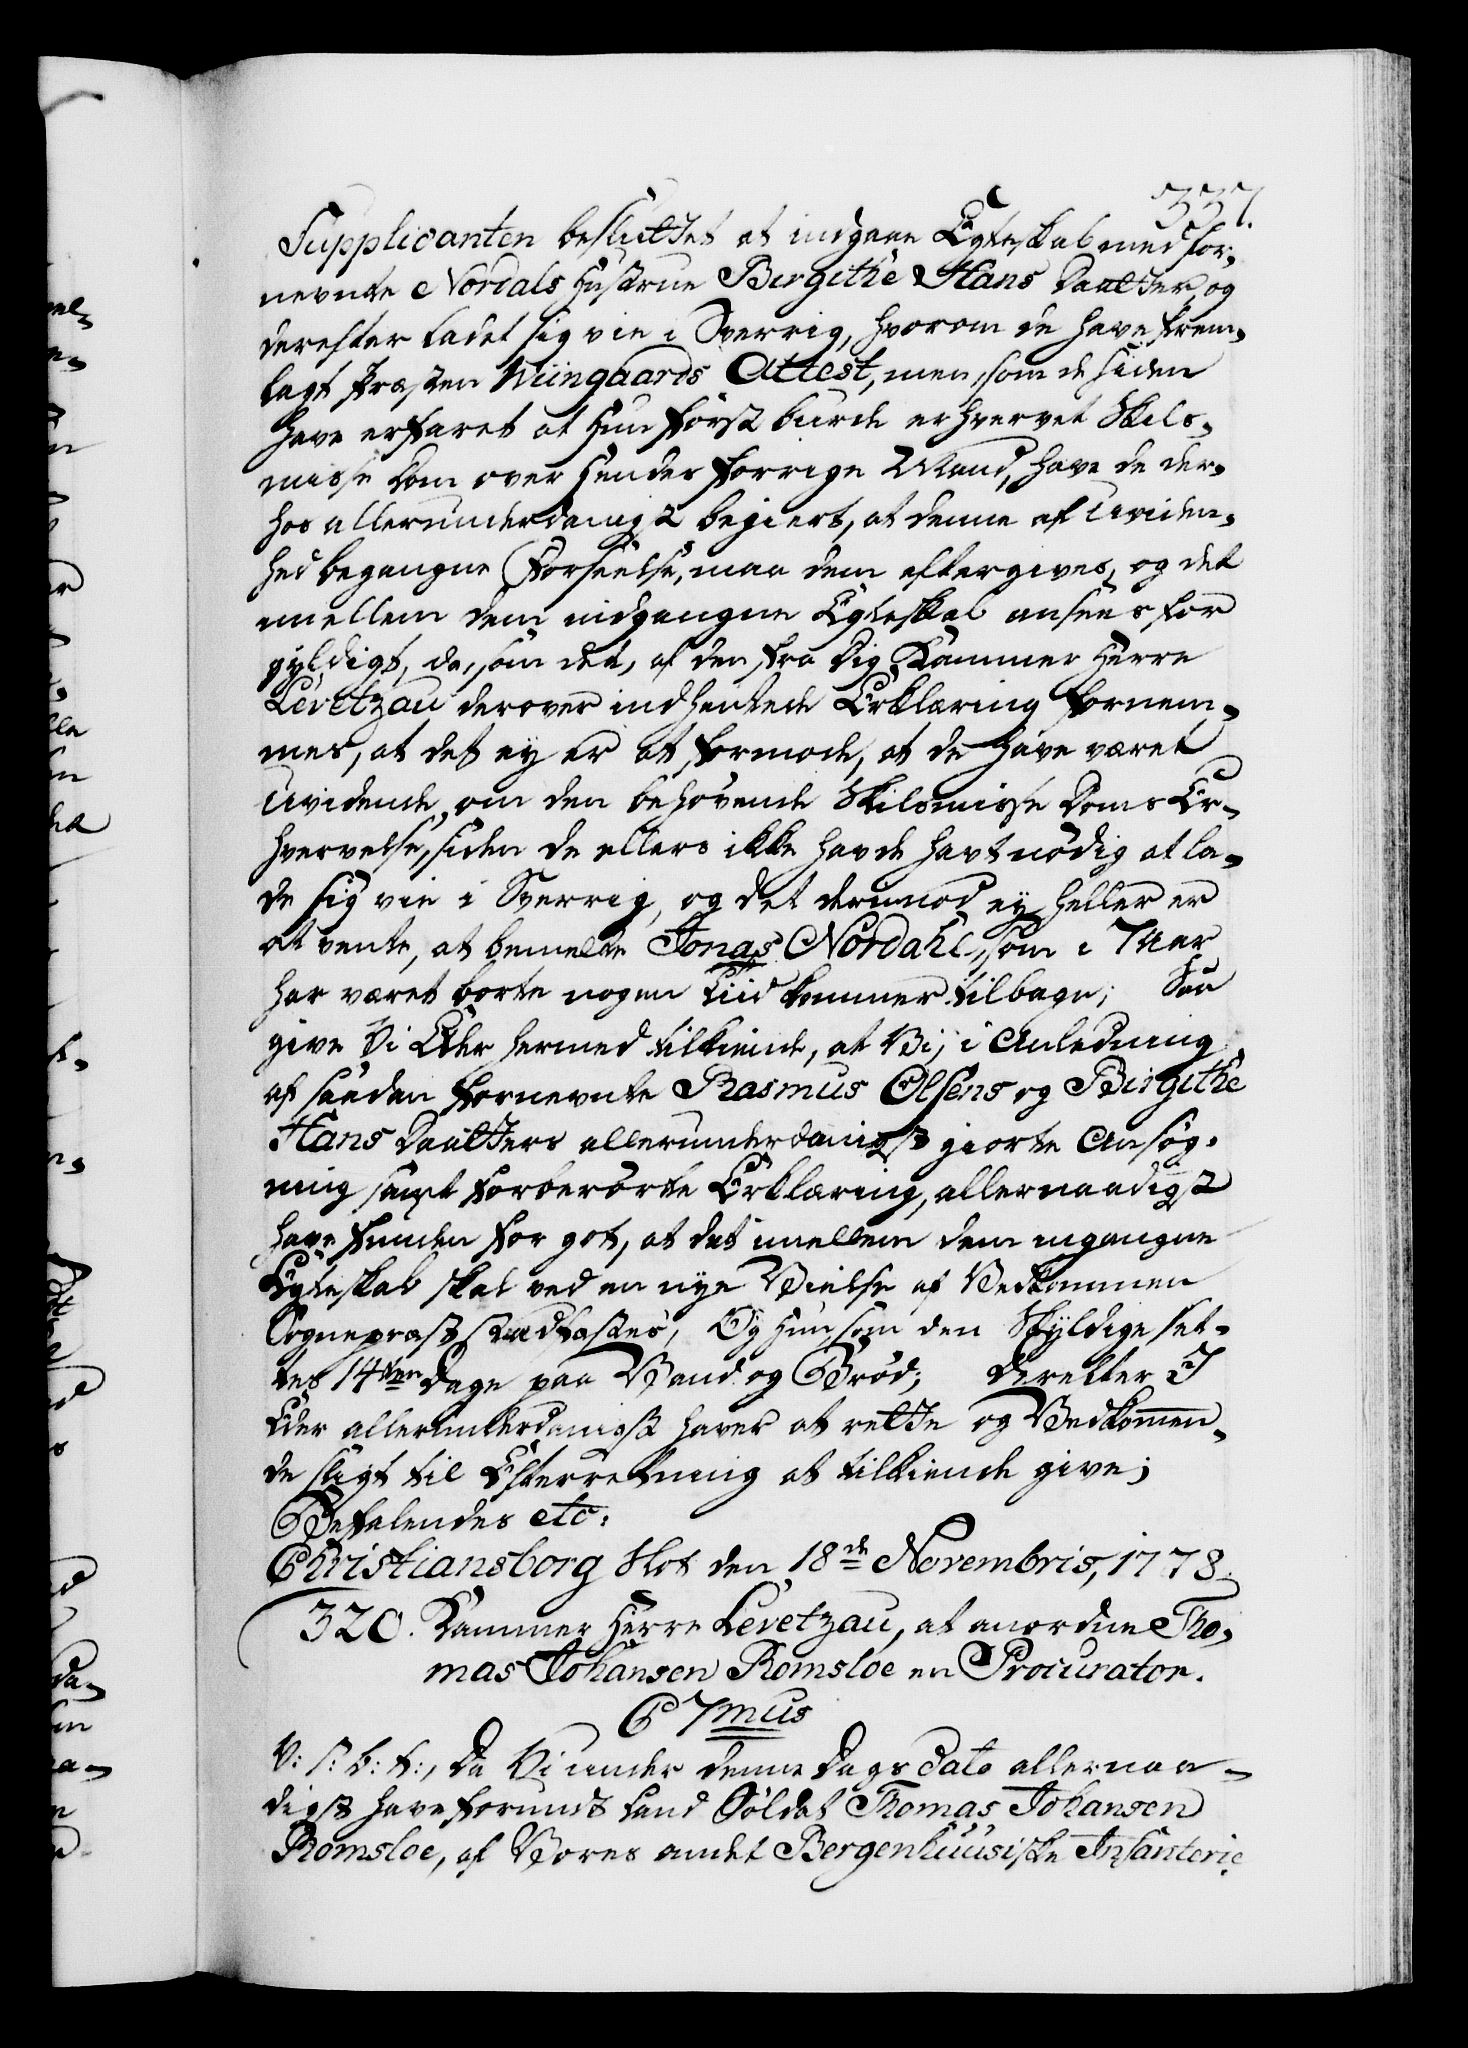 337.
Supplicanten besluttet at indgaae Egteskab med for¬
nevnte Nordals Hustrue Birgithe Hans Daatter, og
derefter ladet sig vie i Sverrig, hvorom de have frem¬
lagt Præsten Wiingaards Attest, men, som de siden
have erfaret at hun først burde erhvervet Skils¬
misse Dom over hendes forrige Mand, have de der¬
hos allerunderdanigst begiert, at denne af Uviden¬
hed begangne Forseelse, maa dem eftergives, og det
imellem dem indgangne Egteskab ansees for
gyldigt, da, som det, af den fra dig Kammer Herre
Levetzau derover indhentede Erklæring fornem¬
mes, at det ey er at formode, at de have været
Uvidende, om den behøvende Skilsmisse Doms Er¬
hvervelse, siden de ellers ikke havde havt nødig at la¬
de sig vie i Sverrig, og det derimod ey heller er
at vente, at bemelte Jonas Nordahl, som i 7 Aar
har været borte nogen Tiid kommer tilbage; Saa
give Vi Eder hermed tilkiende, at Vi, i Anledning
af saadan fornevnte Rasmus Olsens og Birgithe
Hans Daatters allerunderdanigst giorte Ansøg¬
ning samt forberørte Erklæring, allernaadigst
have funden for got, at det imellem dem ingangne
Egteskab skal ved en nye Vielse af Vedkommen
Sognepræst stadfæstes, Og hun, som den Skyldige set¬
tes 14ten Dage paa Vand og Brød; Derefter I
Eder allerunderdanigst haver at rette og Vedkommen¬
de sligt til Efterretning at tilkiende give;
Befalendes etc:
Christiansborg Slot den 18de Novembris, 1778.
320. Kammer Herre Levetzau, at anordne Tho¬
mas Johansen Romsloe en Procurator.
C 7mus
V: S: b: t:, Da Vi under denne Dags Dato allernaa¬
digst have forundt Land Soldat Thomas Johansen
Romsloe, af Vores andet Bergenhuusiske Infanterie